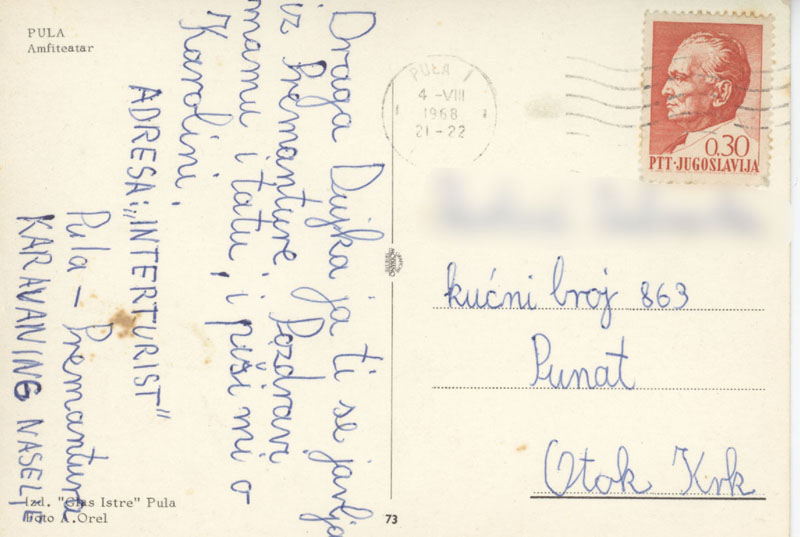 PULA
Amfiteatar
Draga Dujka ja ti se javlja
iz Premanture. Pozdravi
mamu i tatu, i piši mi o
Karolini.
ADRESA: „INTERTURIST"
Pula - Premantura
KARAVANING NASELJE
Izd. "Glas Istre" Pula
Foto A. Orel
73
PULA 1
4 -VIII
1968
21-22
0,30
PTT·JUGOSLAVIJA
kućni broj 863
Punat
Otok Krk